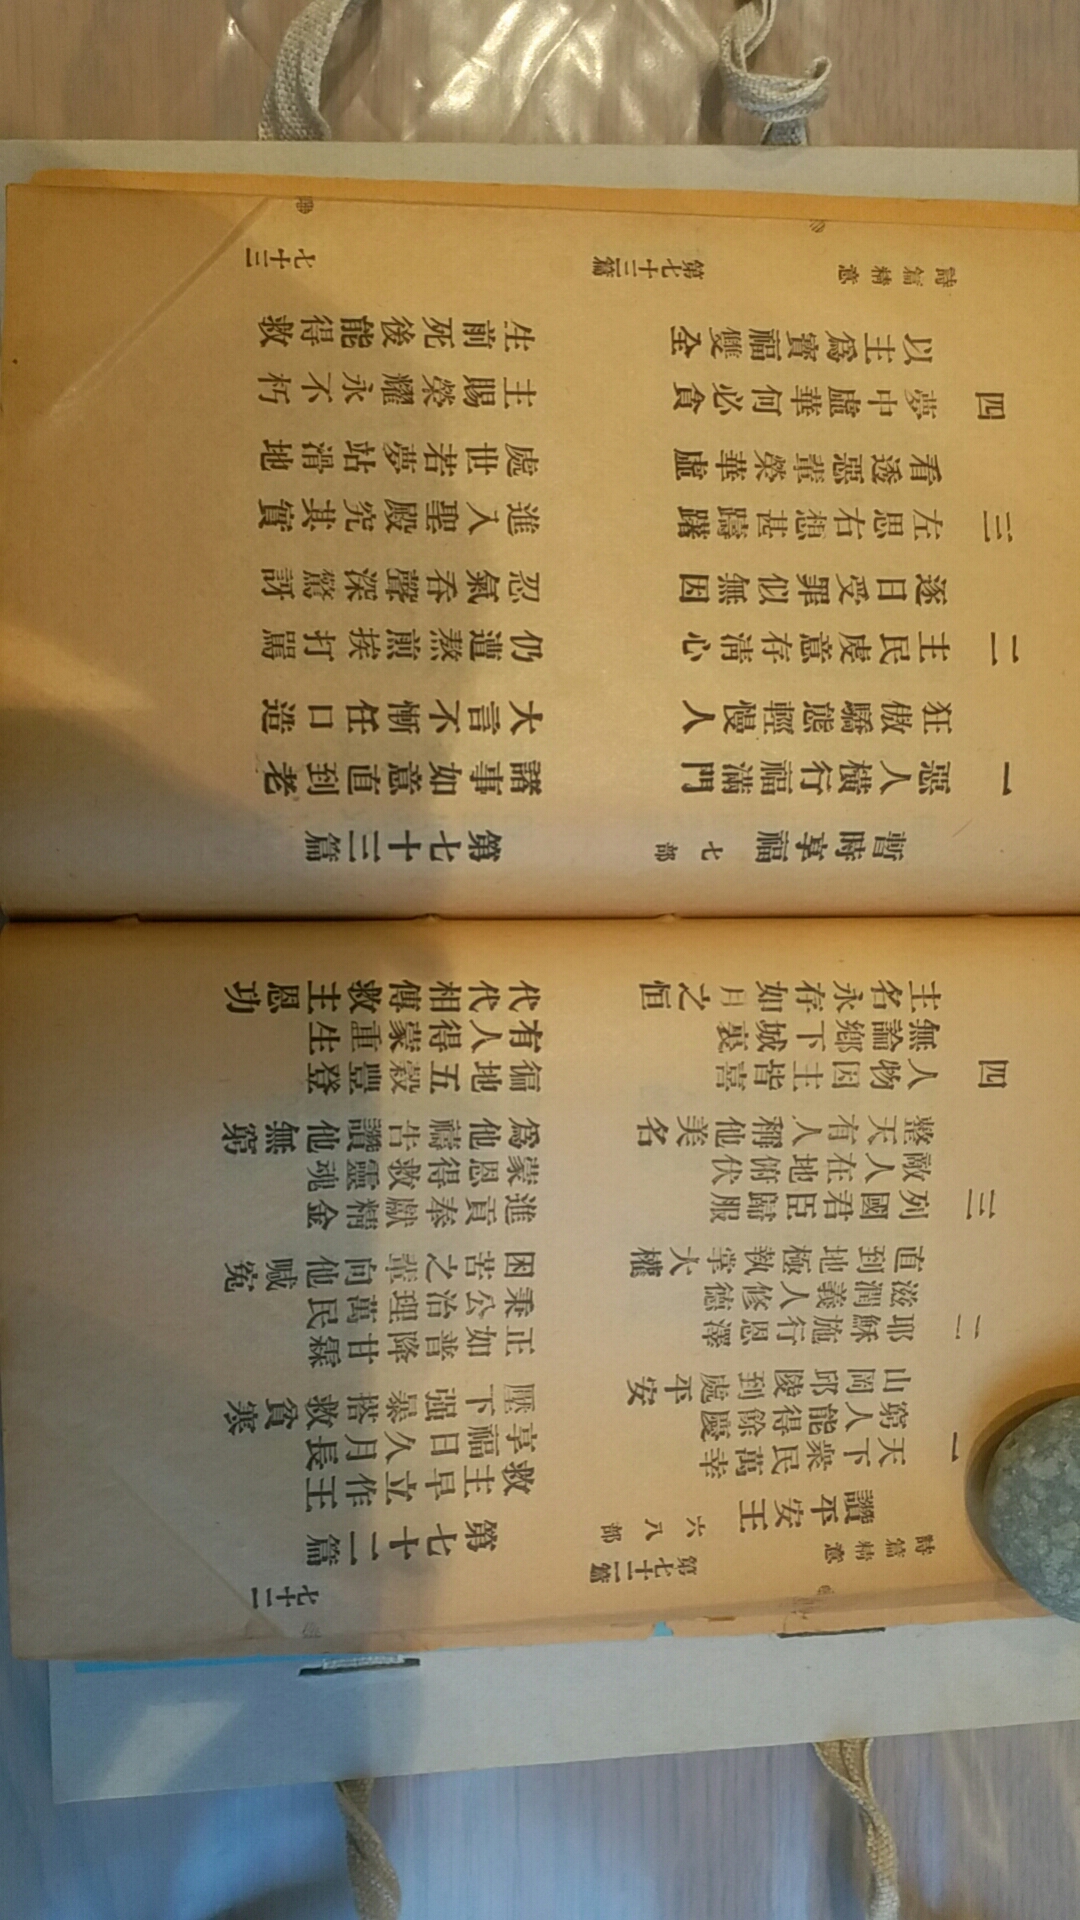 詩篇精意 第七十二篇 七十二
讚平安王 六八部 第七十二篇
一 天下衆民萬幸 救主早立作王
窮人能得餘慶 享福日久月長
山岡邱陵到處平安 壓下强暴搭救貧寒
二 耶穌施行恩澤 正如普降甘霖
滋潤義人修德 秉公治理萬民
直到地極執掌大權 困苦之輩向他喊寃
三 列國君臣歸服 進貢奉獻精金
敵人在地俯伏 蒙恩得救靈魂
整天有人稱他美名 爲他禱告讚他無窮
四 人物因主皆喜 徧地五穀豐登
無論鄉下城裏 有人得蒙重生
主名永存如月之恒 代代相傳救主恩功
暫時享福 七部 第七十三篇
一 惡人橫行福滿門 諸事如意直到老
狂傲驕態輕慢人 大言不慚任口造
二 主民虔意存淸心 仍遭熬煎挨打罵
逐日受罪似無因 忍氣吞聲深驚訝
三 左思右想甚躊躇 進入聖殿究其實
看透惡輩榮華虛 處世若夢站滑地
四 夢中虛華何必貪 主賜榮耀永不朽
以主爲寶福雙全 生前死後能得救
詩篇精意 第七十三篇 七十三